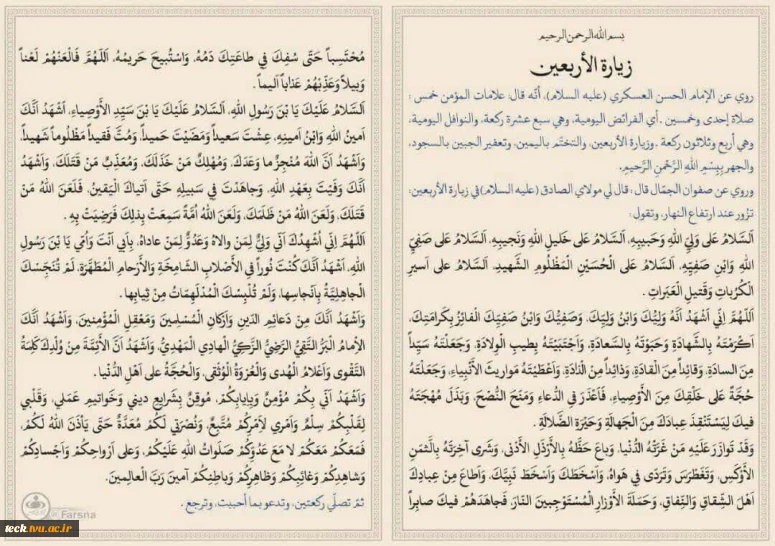 بسم الله الرحمن الرحيم
زيارة الأربعين
روي عن الإمام الحسن العسكري (عليه السلام)، أنّه قال: علامات المؤمن خمس :
صلاة إحدى وخمسين ـ أي الفرائض اليومية، وهي سبع عشرة ركعة، والنوافل اليومية،
وهي أربع وثلاثون ركعة ـ وزيارة الأربعين، والتختّم باليمين، وتعفير الجبين بالسجود،
والجهر بِبِسْمِ اللهِ الرَّحْمٰنِ الرَّحِيمِ.
وروي عن صفوان الجمّال قال: قال لي مولاي الصادق (عليه السلام) في زيارة الأربعين:
تزور عند ارتفاع النهار، وتقول:
اَلسَّلامُ عَلى وَلِيِّ اللهِ وَحَبيبِهِ، اَلسَّلامُ عَلى خَليلِ اللهِ وَنَجيبِهِ، اَلسَّلامُ عَلى صَفِيِّ
اللهِ وَابْنِ صَفِيِّهِ، اَلسَّلامُ عَلى الْحُسَيْنِ الْمَظْلُومِ الشَّهيدِ، اَلسَّلامُ على اَسيرِ
الْكُرُباتِ وَقَتيلِ الْعَبَراتِ .
اَللّـهُمَّ اِنّي اَشْهَدُ اَنَّهُ وَلِيُّكَ وَابْنُ وَلِيِّكَ، وَصَفِيُّكَ وَابْنُ صَفِيِّكَ الْفائِزُ بِكَرامَتِكَ،
اَكْرَمْتَهُ بِالشَّهادَةِ وَحَبَوْتَهُ بِالسَّعادَةِ، وَاَجْتَبَيْتَهُ بِطيبِ الْوِلادَةِ، وَجَعَلْتَهُ سَيِّداً
مِنَ السادَةِ، وَقائِداً مِنَ الْقادَةِ، وَذائِداً مِنَ الْذادَةِ، وَاَعْطَيْتَهُ مَواريثَ الْأَنْبِياءِ، وَجَعَلْتَهُ
حُجَّةً عَلى خَلْقِكَ مِنَ الْأَوْصِياءِ، فَاَعْذَرَ فىِ الدُّعاءِ وَمَنَحَ النُّصْحَ، وَبَذَلَ مُهْجَتَهُ
فيكَ لِيَسْتَنْقِذَ عِبادَكَ مِنَ الْجَهالَةِ وَحَيْرَةِ الضَّلالَةِ .
وَقَدْ تَوازَرَ عَلَيْهِ مَنْ غَرَّتْهُ الدُّنْيا، وَباعَ حَظَّهُ بِالْأَرْذَلِ الْأَدْنى، وَشَرى آخِرَتَهُ بِالَّثمَنِ
الْأَوْكَسِ، وَتَغَطْرَسَ وَتَرَدّى فِي هَواهُ، وَاَسْخَطَكَ وَاَسْخَطَ نَبِيَّكَ، وَاَطاعَ مِنْ عِبادِكَ
اَهْلَ الشِّقاقِ وَالنِّفاقِ، وَحَمَلَةَ الْأَوْزارِ الْمُسْتَوْجِبينَ النّارَ، فَجاهَدَهُمْ فيكَ صابِراً
مُحْتَسِباً حَتّى سُفِكَ فِي طاعَتِكَ دَمُهُ، وَاسْتُبيحَ حَريمُهُ، اَللّـهُمَّ فَالْعَنْهُمْ لَعْناً
وَبيلاً وَعَذِّبْهُمْ عَذاباً اَليماً .
اَلسَّلامُ عَلَيْكَ يَا بْنَ رَسُولِ اللهِ، اَلسَّلامُ عَلَيْكَ يَا بْنَ سَيِّدِ الْأَوْصِياءِ، اَشْهَدُ اَنَّكَ
اَمينُ اللهِ وَابْنُ اَمينِهِ، عِشْتَ سَعيداً وَمَضَيْتَ حَميداً، وَمُتَّ فَقيداً مَظْلُوماً شَهيداً،
وَاَشْهَدُ اَنَّ اللهَ مُنْجِزٌ ما وَعَدَكَ، وَمُهْلِكٌ مَنْ خَذَلَكَ، وَمُعَذِّبٌ مَنْ قَتَلَكَ، وَاَشْهَدُ
اَنَّكَ وَفَيْتَ بِعَهْدِ اللهِ، وَجاهَدْتَ فِي سَبيلِهِ حَتّى اَتياكَ الْيَقينُ، فَلَعَنَ اللهُ مَنْ
قَتَلَكَ، وَلَعَنَ اللهُ مَنْ ظَلَمَكَ، وَلَعَنَ اللهُ اُمَّةً سَمِعَتْ بِذلِكَ فَرَضِيَتْ بِهِ .
اَللّـهُمَّ اِنّي اُشْهِدُكَ اَنّي وَلِيٌّ لِمَنْ والاهُ وَعَدُوٌّ لِمَنْ عاداهُ، بِاَبي اَنْتَ وَاُمّي يَا بْنَ رَسُولِ
اللهِ، اَشْهَدُ اَنَّكَ كُنْتَ نُوراً في الْأَصْلابِ الشّامِخَةِ وَالْأَرْحامِ الْمُطَهَّرَةِ، لَمْ تُنَجِّسْكَ
الْجاهِلِيَّةُ بِاَنْجاسِها، وَلَمْ تُلْبِسْكَ الْمُدْلَهِمّاتُ مِنْ ثِيابِها .
وَاَشْهَدُ اَنَّكَ مِنْ دَعائِمِ الدّينِ وَاَرْكانِ الْمُسْلِمينَ وَمَعْقِلِ الْمُؤْمِنينَ، وَاَشْهَدُ اَنَّكَ
الْأِمامُ الْبَرُّ التَّقِيُّ الرَّضِيُّ الزَّكِيُّ الْهادِي الْمَهْدِيُّ، وَاَشْهَدُ اَنَّ الْأَئِمَّةَ مِنْ وُلْدِكَ كَلِمَةُ
التَّقْوى وَاَعْلامُ الْهُدى وَالْعُرْوَةُ الْوُثْقى، وَالْحُجَّةُ على اَهْلِ الدُّنْيا .
وَاَشْهَدُ اَنّي بِكُمْ مُؤْمِنٌ وَبِاِيابِكُمْ، مُوقِنٌ بِشَرايِعِ ديني وَخَواتيمِ عَمَلي، وَقَلْبي
لِقَلْبِكُمْ سِلْمٌ وَاَمْري لِأَمْرِكُمْ مُتَّبِعٌ، وَنُصْرَتي لَكُمْ مُعَدَّةٌ حَتّى يَأْذَنَ اللهُ لَكُمْ،
فَمَعَكُمْ مَعَكُمْ لا مَعَ عَدُوِّكُمْ صَلَواتُ اللهِ عَلَيْكُمْ، وَعلى اَرْواحِكُمْ وَاَجْسادِكُمْ
وَشاهِدِكُمْ وَغائِبِكُمْ وَظاهِرِكُمْ وَباطِنِكُمْ آمينَ رَبَّ الْعالَمينَ.
ثمّ تصلّي ركعتين، وتدعو بما أحببت، وترجع .
@Farsna
teck.tvu.ac.ir